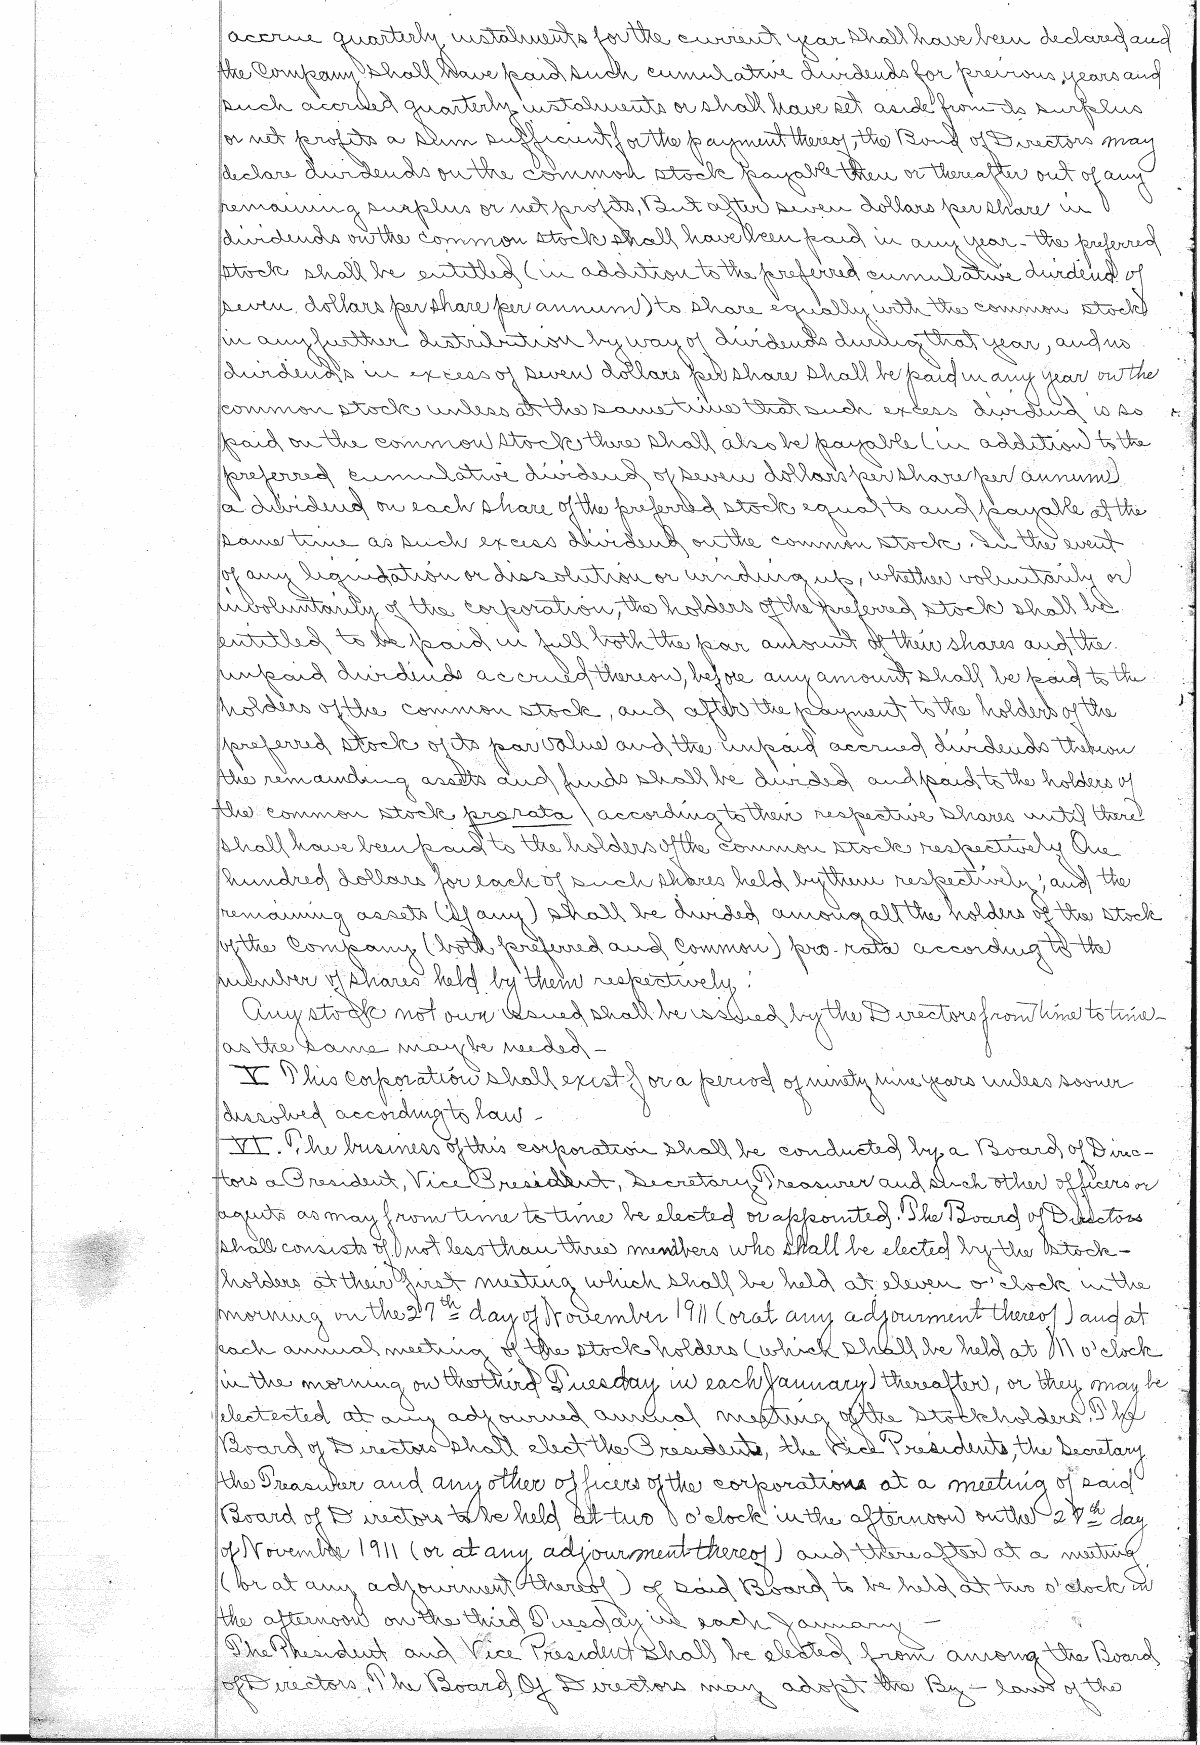 accrue quarterly instalments for the current year shall have been declared and
the Company shall have paid such cumulative dividends for previous years and
such accrued quarterly instalments or shall have set aside from its surplus
or net profits a sum sufficient for the payment thereof, the Board of Directors may
declare dividends on the common stock payable then or thereafter out of any
remaining surplus or net profits, But after seven dollars per share in
dividends on the common stock shall have been paid in any year - the preferred
stock shall be entitled (in addition to the preferred cumulative dividend of
seven dollars per share per annum) to share equally with the common stock
in any further distribution by way of dividends during that year, and no
dividends in excess of seven dollars per share shall be paid in any year on the
common stock unless at the same time that such excess dividend is so
paid on the common stock there shall also be payable (in addition to the
preferred cumulative dividend of seven dollars per share per annum)
a dividend on each share of the preferred stock equal to and payable at the
same time as such excess dividend on the common stock. In the event
of any liquidation or dissolution or winding up, whether voluntarily or
involuntarily of the corporation, the holders of the preferred stock shall be
entitled to be paid in full both the par amount of their shares and the
unpaid dividends accrued thereon, before any amount shall be paid to the
holders of the common stock, and after the payment to the holders of the
preferred stock of its par value and the unpaid accrued dividends thereon
the remainding assets and funds shall be divided and paid to the holders of
the common stock pro rata according to their respective shares until there
shall have been paid to the holders of the common stock respectively One
hundred dollars for each of such shares held by them respectively; and the
remaining assets (if any) shall be divided among all the holders of the stock
of the Company (both preferred and Common) pro-rata according to the
number of shares held by them respectively.
Any stock not own issued shall be issued by the Directors from time to time -
as the same may be needed -
V This corporation shall exist for a period of ninety nine years unless sooner
dissolved according to law -
VI. The business of this corporation shall be conducted by a Board of Direc-
tors a President, Vice President, Secretary, Treasurer and such other officers or
agents as may from time to time be elected or appointed. The Board of Directors
shall consists of not less than three members who shall be elected by the stock-
holders at their first meeting which shall be held at eleven o'clock in the
morning on the 27th day of November 1911 (or at any adjourment thereof) and at
each annual meeting of the stock holders (which shall be held at 11 o'clock
in the morning on the third Tuesday in each January) thereafter, or they may be
electected at any adjourned annual meeting of the Stockholders. The
Board of Directors shall elect the Presidents, the Vice Presidents, the Secretary
the Treasurer and any other officers of the corporations at a meeting of said
Board of Directors to be held at two o'clock in the afternoon on the 27th day
of November 1911 (or at any adjourment thereof) and thereafter at a meeting
(or at any adjourment thereof) of said Board to be held at two o'clock in
the afternoon on the third Tuesday in each January -
The President and Vice President shall be elected from among the Board
of Directors. The Board Of Directors may adopt the By-laws of the